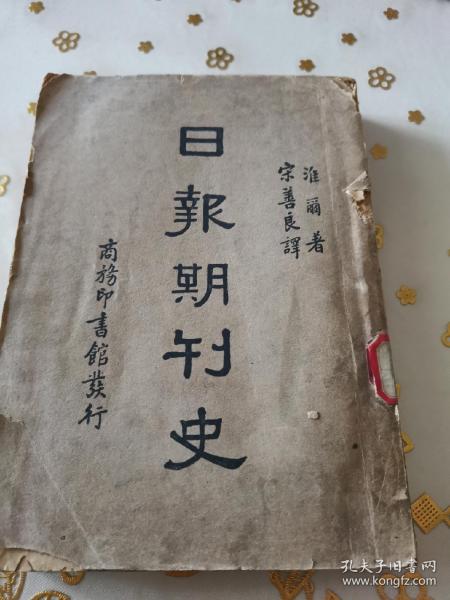 淮爾著
宋善良譯
日報期刊史
商務印書館發行
孔夫子旧书网
www.kongfz.com